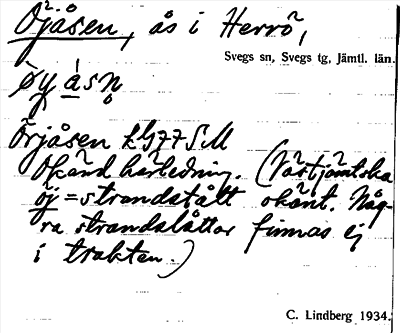 Öjåsen, ås i Herrö,
Svegs sn, Svegs tg, Jämtl. län.
Örjåsen LG77 SM
Okänd härledning. (Västjämtska
öj = strandslått okänt. Någ-
ra strandslåttar finnas ej
i trakten.)
C. Lindberg 1934.